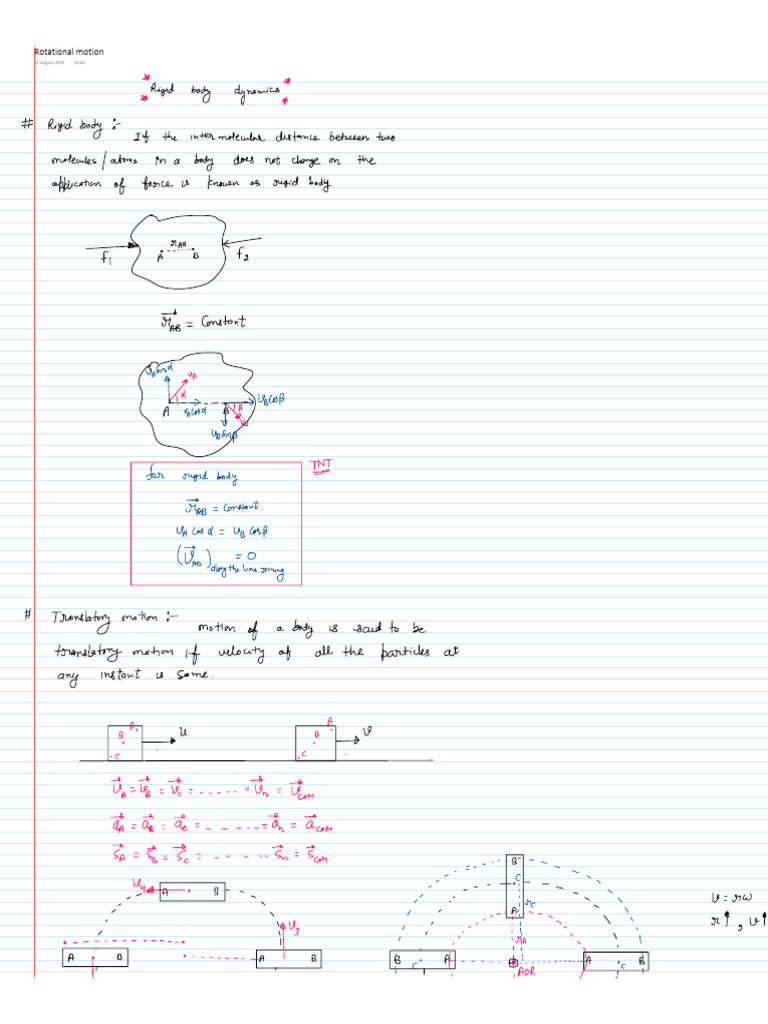 Rotational motion
12 August 2023 10:52
Rigid body dynamics
# Rigid body :-
If the intermolecular distance between two
molecules/atoms in a body does not change on the
application of force is known as rigid body
f1 A r_AB B f2
r⃗_AB = Constant
v_A sinα v_A
α
A v_A cosα B β v_B cosβ
v_B sinβ v_B
for rigid body TNT
r⃗_AB = Constant
v_A cosα = v_B cosβ
(v⃗_AB) along the line joining = 0
# Translatory motion :-
motion of a body is said to be
translatory motion if velocity of all the particles at
any instant is same.
A B C u A B C v
v⃗_A = v⃗_B = v⃗_C = ------- = v⃗_n = v⃗_COM
a⃗_A = a⃗_B = a⃗_C = ------- = a⃗_n = a⃗_COM
s⃗_A = s⃗_B = s⃗_C = ------- s⃗_n = s⃗_COM
v_4 A B
v_3
A B A B
B
C
r_C
A
r_A
B C A AOR A C B
v = rω
r↑, v↑